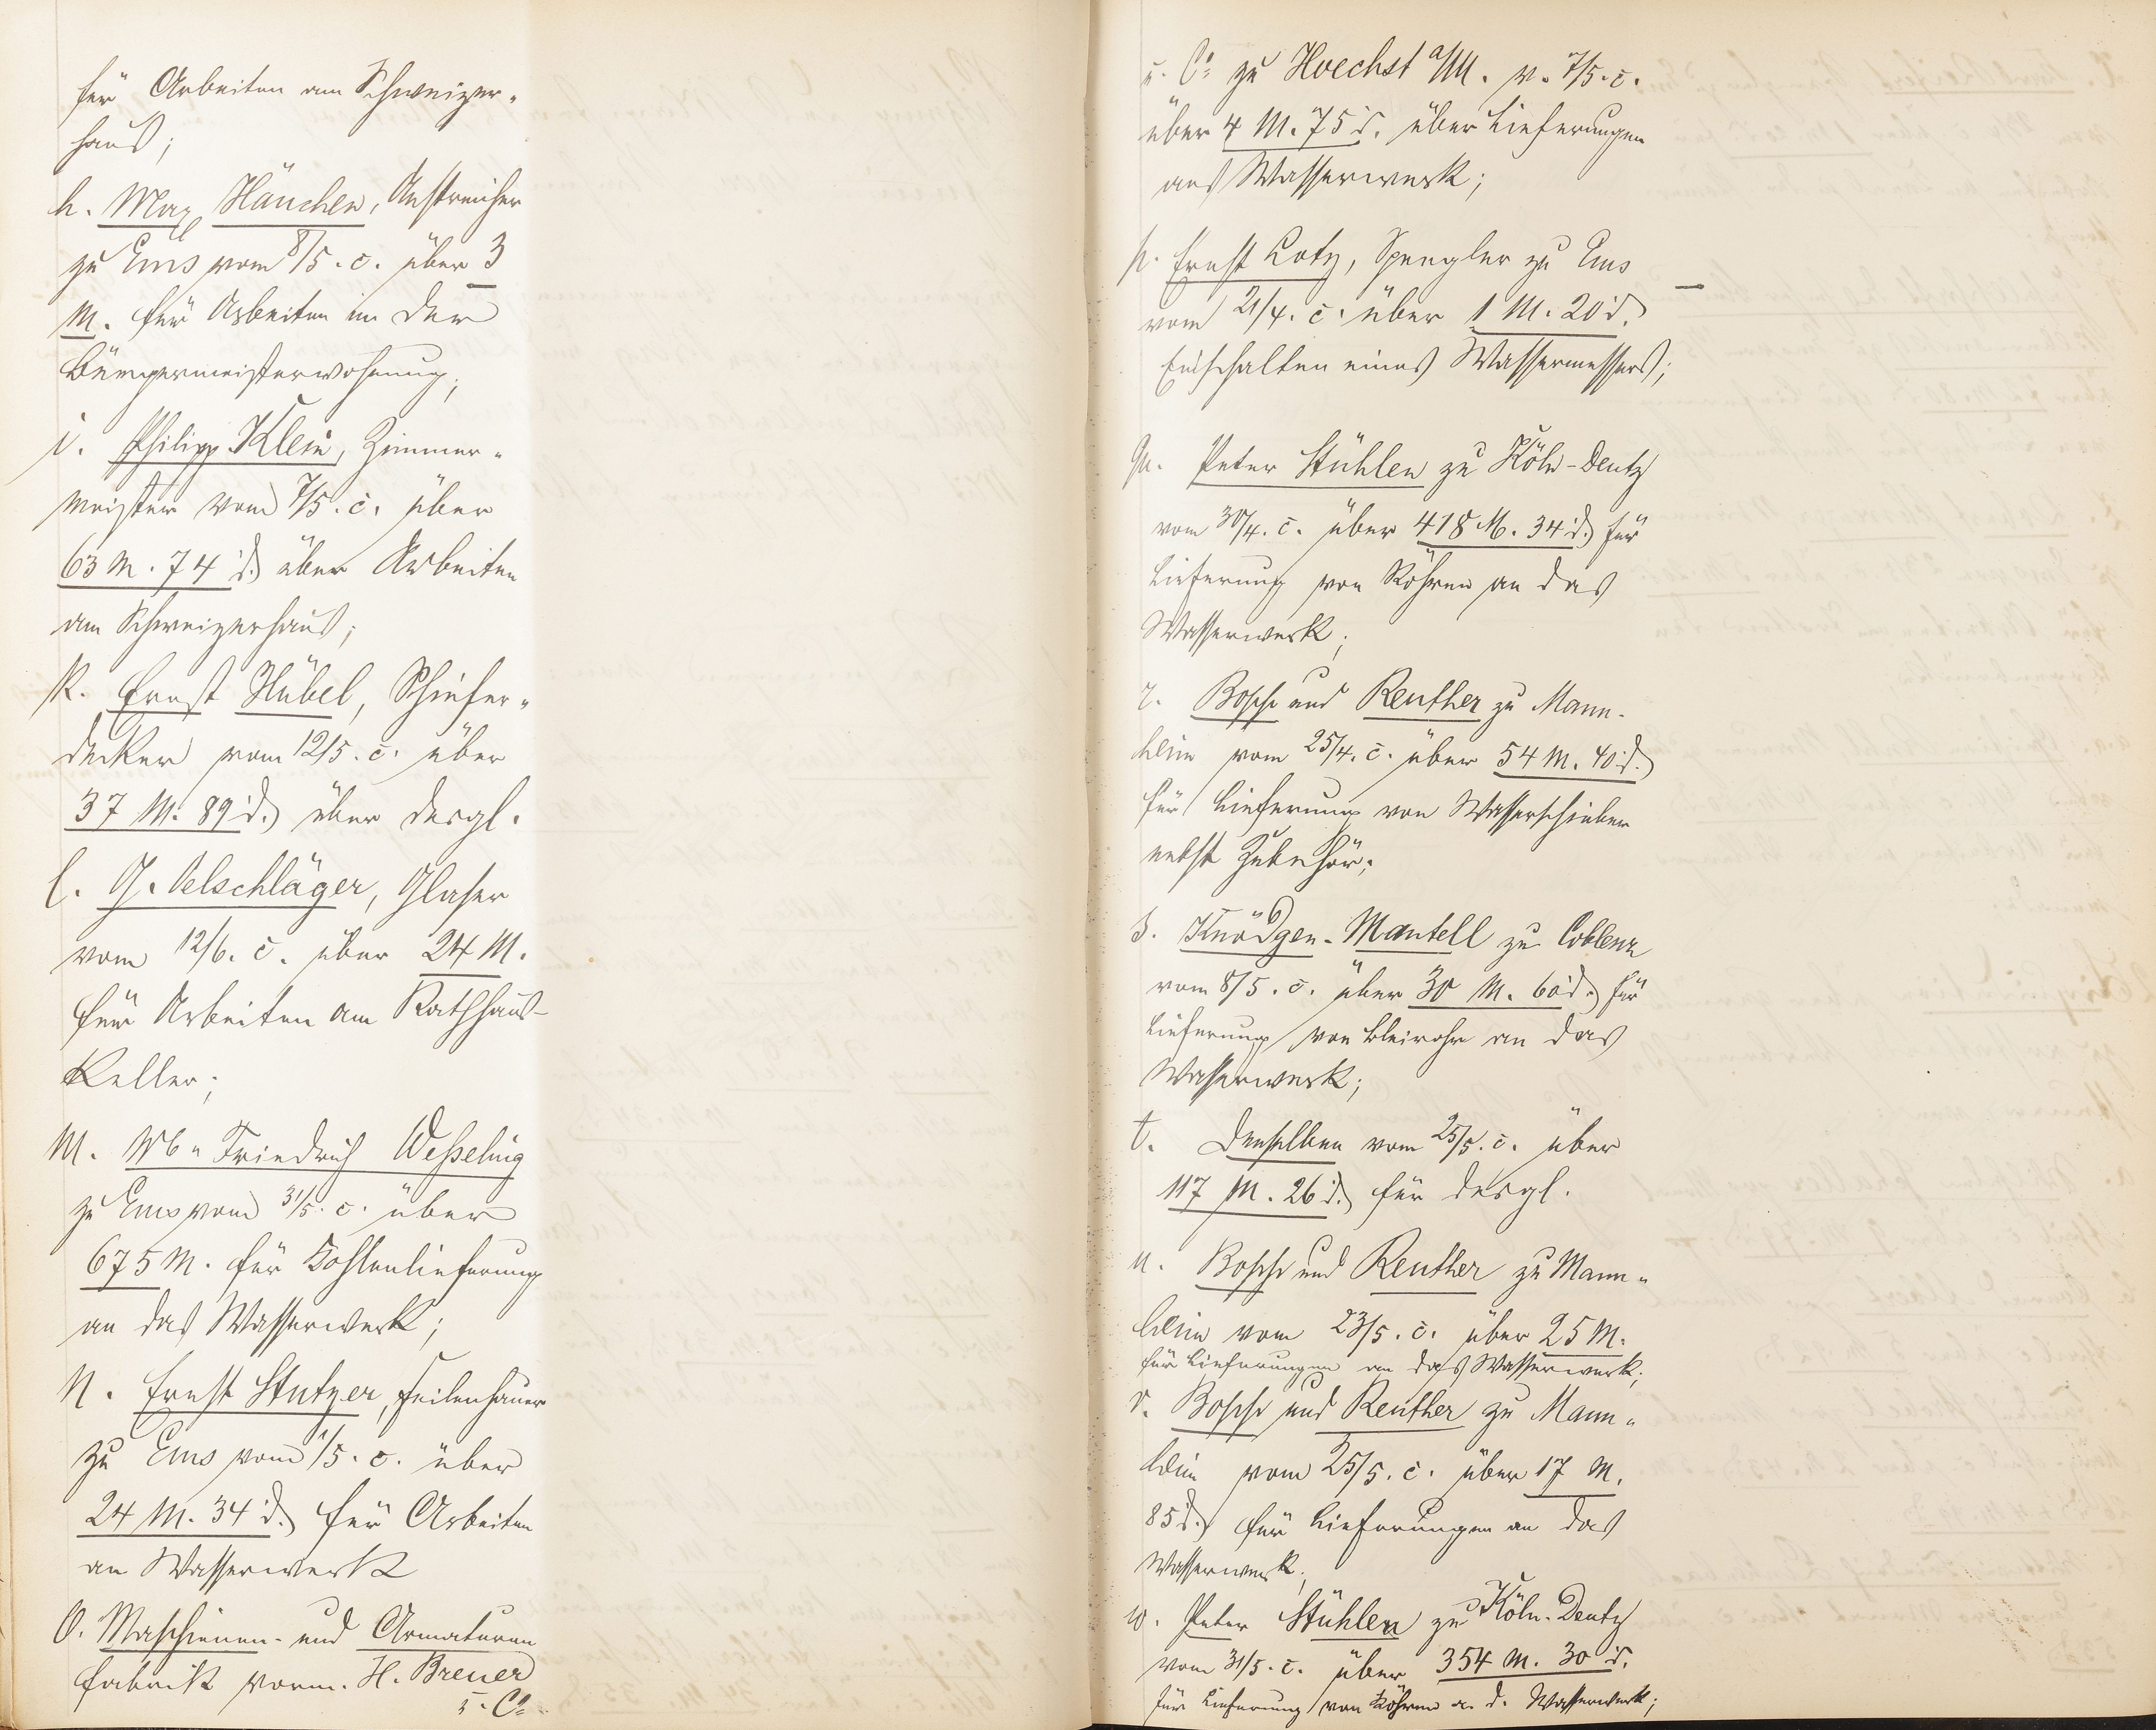 für Arbeiten am Schweizer-
haus;
h. Max Hänchen, Anstreicher
zu Ems vom 8/5. c. über 3
M. für Arbeiten in der
Bürgermeisterwohnung;
i. Philipp Klein, Zimmer-
meister vom 7/5. c. über
63 M. 74 d. über Arbeiten
am Schweizerhaus;
k. Ernst Hübel, Schiefer-
decker vom 12/5. c. über
37 M. 89 d. über desgl.
l. G. Oelschläger, Glaser
vom 12/6. c. über 24 M.
für Arbeiten am Rathhaus-
Keller;
m. Friedrich Wesseling
zu Ems vom 31/5. c. über
675 M. für Kohlenlieferung
an das Wasserwerk;
n. Ernst Stutzer, Feilenhauer
zu Ems vom 1/5. c. über
24 M. 34 d. für Arbeiten
am Wasserwerk
o. Maschienen- und Armaturen
fabrik vorm. H. Breuer
u. Co
u. Co zu Hoechst a/M. v. 7/5. c.
über 4 M. 75 d. über Lieferungen
ans Wasserwerk;
p. Ernst Lotz, Spengler zu Ems
vom 21/4. c. über 1 M. 20 d.
Einschalten eines Wassermessers;
qu. Peter Stühlen zu Köln-Deutz
vom 30/4. c. über 418 M. 34 d. für
Lieferung von Röhren an das
Wasserwerk;
r. Bopp und Reuther zu Mann-
heim vom 25/4. c. über 54 M. 40 d.
für Lieferung von Wasserschieber
nebst Zubehör;
s. Knödgen-Mantell zu Coblenz
vom 8/5. c. über 30 M. 60 d. für
Lieferung von Bleirohr an das
Wasserwerk;
t. Denselben vom 25/5. c. über
117 M. 26 d. für desgl.
u. Bopp und Reuther zu Mann-
heim vom 23/5. c. über 25 M.
für Lieferungen an das Wasserwerk;
v. Bopp und Reuther zu Mann-
heim vom 25/5. c. über 17 M.
85 d. für Lieferungen an das
Wasserwerk;
w. Peter Stühlen zu Köln-Deutz
vom 31/5. c. über 354 M. 30 d.
für Lieferung von Röhren a. d. Wasserwerk;